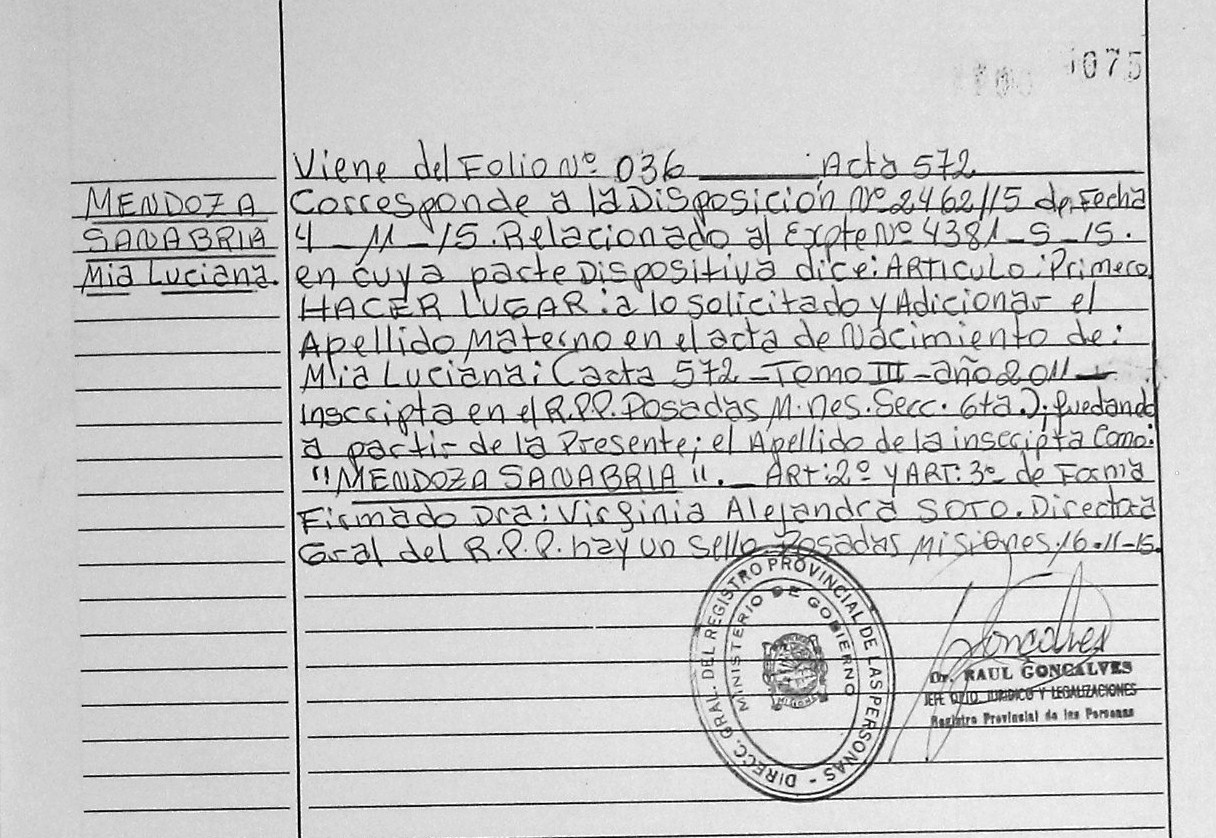 075
Viene del Folio Nº 036 Acta 572
MENDOZA
SANABRIA
Mia Luciana.
Corresponde a la Disposición Nº 2462/15 de Fecha
4 - 11 - 15. Relacionado al Expte Nº 4381 - S - 15.
en cuya parte Dispositiva dice: ARTICULO: Primero
HACER LUGAR: a lo solicitado y Adicionar el
Apellido Materno en el acta de Nacimiento de:
Mia Luciana; (acta 572 - Tomo III - año 2011 -
inscripta en el R.P.P. Posadas M.nes. Secc. 6ta.); quedando
a partir de la Presente; el Apellido de la inscripta Como:
"MENDOZA SANABRIA". - ART: 2º y ART: 3º de Forma
Firmado Dra: Virginia Alejandra SOTO. Directora
Gral del R.P.P. hay un Sello Posadas Misiones 16-11-15.
DIRECC. GRAL. DEL REGISTRO PROVINCIAL DE LAS PERSONAS -
MINISTERIO DE GOBIERNO
Goncalves
Dr. RAUL GONCALVES
JEFE DPTO. JURIDICO Y LEGALIZACIONES
Registro Provincial de las Personas